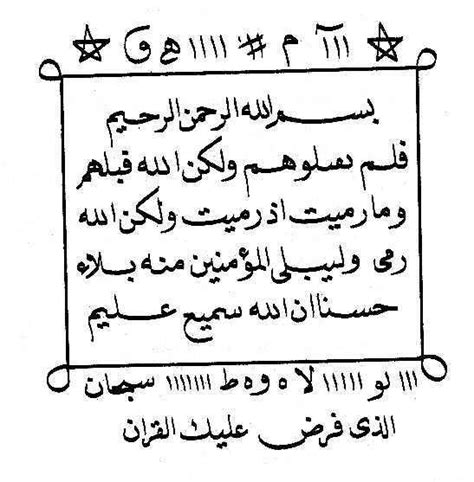 ااآ م # ااااا هي و
بسم الله الرحمن الرحيم
فلم تعىلوهم ولكن الله قبلهم
وما رميت اذ رميت ولكن الله
رمى وليبلى المؤمنين منه بلاء
حسنا ان الله سميع عليم
ااا لو ااااا لا ه و ه ط ااااااا سبحان
الذى فرض عليك القران